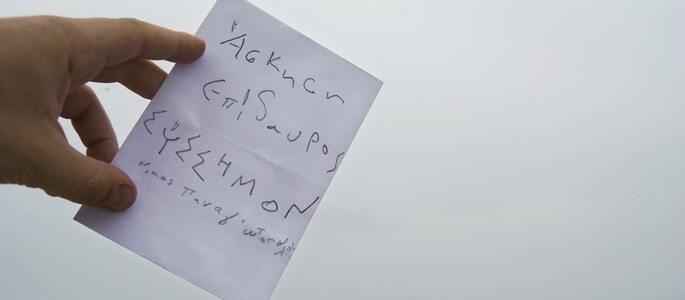 Άσκηση
Επίδαυρος
ΣΥΣΣΗΜΟΝ
Νίκος Παναγιωτόπουλος